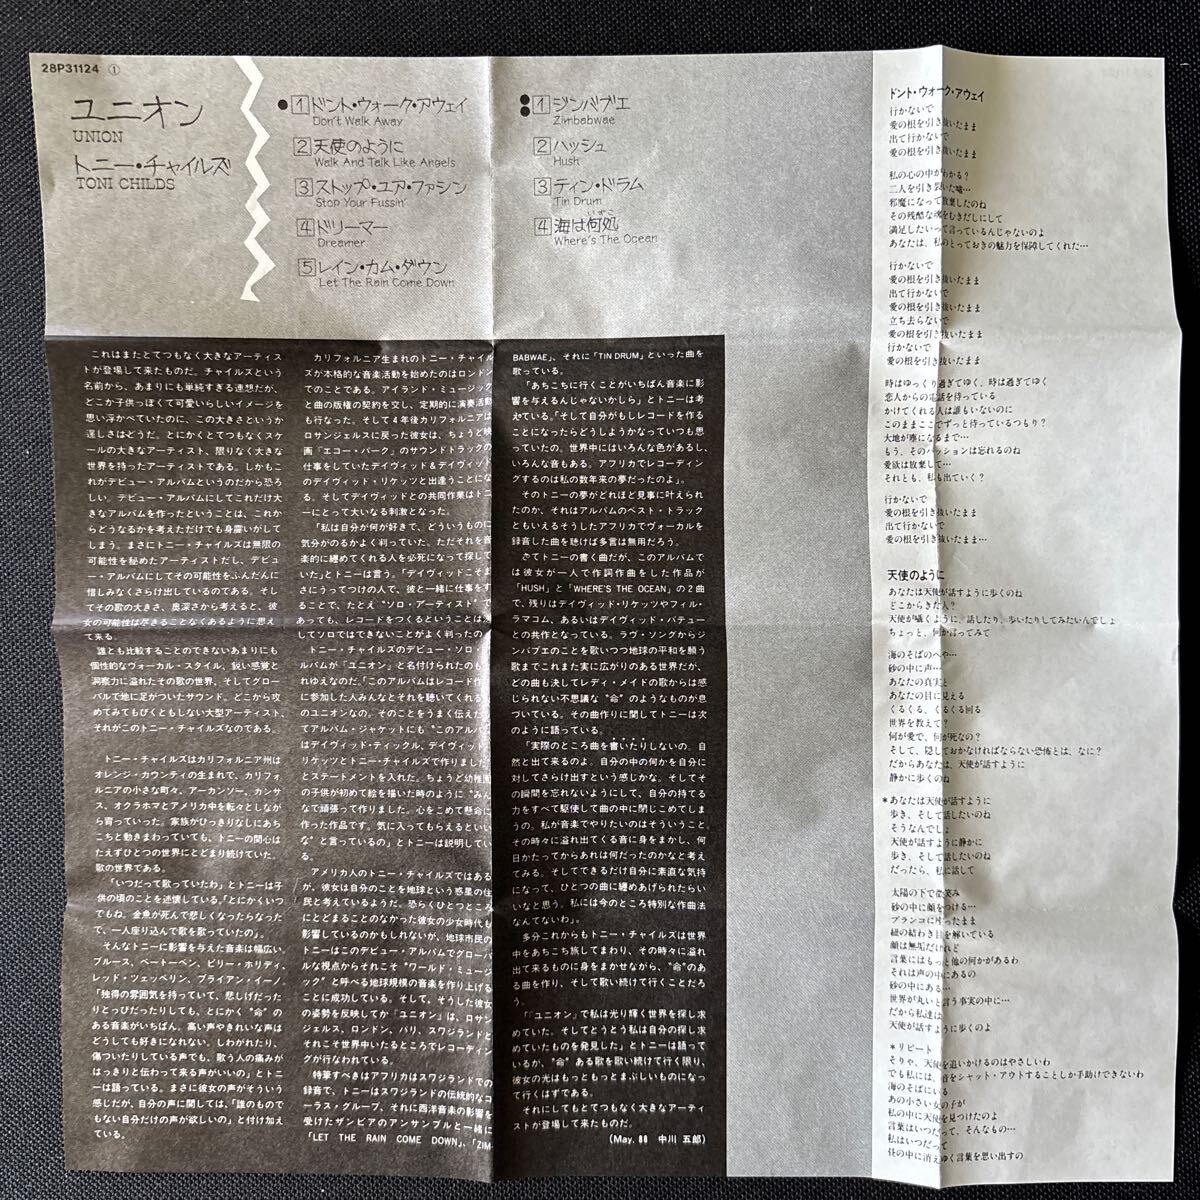 28P31124 ①
ユニオン
UNION
トニー・チャイルズ
TONI CHILDS
● 1 ドント・ウォーク・アウェイ
Don't Walk Away
2 天使のように
Walk And Talk Like Angels
3 ストップ・ユア・ファシン
Stop Your Fussin'
4 ドリーマー
Dreamer
5 レイン・カム・ダウン
Let The Rain Come Down
● 1 ジンバブエ
● Zimbabwae
2 ハッシュ
Hush
3 ティン・ドラム
Tin Drum
4 海は何処
Where's The Ocean
これはまたとてつもなく大きなアーティス
トが登場して来たものだ。チャイルズという
名前から、あまりにも単純すぎる連想だが、
どこか子供っぽくて可愛いらしいイメージを
思い浮かべていたのに、この大きさというか
逞しさはどうだ。とにかくとてつもなくスケ
ールの大きなアーティスト、限りなく大きな
世界を持ったアーティストである。しかもこ
れがデビュー・アルバムというのだから恐ろ
しい。デビュー・アルバムにしてこれだけ大
きなアルバムを作ったということは、これか
らどうなるかを考えただけでも身震いがして
しまう。まさにトニー・チャイルズは無限の
可能性を秘めたアーティストだし、デビュ
ー・アルバムにしてその可能性をふんだんに
惜しみなくさらけ出しているのである。そし
てその歌の大きさ、奥深さから考えると、彼
女の可能性は尽きることなくあるように思え
て来る。
誰とも比較することのできないあまりにも
個性的なヴォーカル・スタイル、鋭い感覚と
洞察力に溢れたその歌の世界、そしてグロー
バルで地に足がついたサウンド。どこから攻
めてみてもびくともしない大型アーティスト、
それがこのトニー・チャイルズなのである。
トニー・チャイルズはカリフォルニア州は
オレンジ・カウンティの生まれで、カリフォ
ルニアの小さな町々、アーカンソー、カンサ
ス、オクラホマとアメリカ中を転々としなが
ら育っていった。家族がひっきりなしにあち
こちと動きまわっていても、トニーの関心は
たえずひとつの世界にとどまり続けていた。
歌の世界である。
「いつだって歌っていたわ」とトニーは子
供の頃のことを述懐している。「とにかくいつ
でもね。金魚が死んで悲しくなったらなった
で、一人座り込んで歌を歌っていたの」。
そんなトニーに影響を与えた音楽は幅広い。
ブルース、ベートーベン、ビリー・ホリディ、
レッド・ツェッペリン、ブライアン・イーノ。
「独得の雰囲気を持っていて、悲しげだった
りとっぴだったりしても、とにかく“命”の
ある音楽がいちばん。高い声やきれいな声は
どうしても好きになれない。しわがれたり、
傷ついたりしている声でも、歌う人の痛みが
はっきりと伝わって来る声がいい」とトニー
は語っている。まさに彼女の声がそういう
感じだが、自分の声に関しては、「誰のもので
もない自分だけの声が欲しいの」と付け加え
ている。
カリフォルニア生まれのトニー・チャイル
ズが本格的な音楽活動を始めたのはロンドン
でのことである。アイランド・ミュージック
と曲の版権の契約を交し、定期的に演奏活動
も行なった。そして4年後カリフォルニアは
ロサンジェルスに戻った彼女は、ちょうど映
画「エコー・パーク」のサウンドトラックの
仕事をしていたデイヴィッド&デイヴィッド
のデイヴィッド・リケッツと出逢うことにな
る。そしてデイヴィッドとの共同作業はトニ
ーにとって大いなる刺激となった。
「私は自分が何が好きで、どういうものに
気分がのるかよく判っていた、ただそれを音
楽的に纏めてくれる人を必死になって探して
いた」とトニーは言う。「デイヴィッドこそま
さにうってつけの人で、彼と一緒に仕事をす
ることで、たとえ“ソロ・アーティスト”で
あっても、レコードをつくるということは決
してソロではできないことがよく判ったの」
トニー・チャイルズのデビュー・ソロ・ア
ルバムが「ユニオン」と名付けられたのもそ
れゆえなのだ。「このアルバムはレコード作り
に参加した人みんなとそれを聴いてくれる人
のユニオンなの。そのことをうまく伝えたく
てアルバム・ジャケットにも“このアルバム
はデイヴィッド・ティックル、デイヴィッド・
リケッツとトニー・チャイルズで作りました”
とステートメントを入れた。ちょうど幼稚園
の子供が初めて絵を描いた時のように“みん
なで頑張って作りました。心をこめて懸命に
作った作品です。気に入ってもらえるといい
な”と言っているの」とトニーは説明してい
る。
アメリカ人のトニー・チャイルズではある
が、彼女は自分のことを地球という惑星の住
民と考えているようだ。恐らくひとつところ
にとどまることのなかった彼女の少女時代も
影響しているのかもしれないが、地球市民の
トニーはこのデビュー・アルバムでグローバ
ルな視点からそれこそ“ワールド・ミュージ
ック”と呼べる地球規模の音楽を作り上げる
ことに成功している。そして、そうした彼女
の姿勢を反映してか「ユニオン」は、ロサン
ジェルス、ロンドン、パリ、スワジランドと
それこそ世界中いたるところでレコーディン
グが行なわれている。
特筆すべきはアフリカはスワジランドでの
録音で、トニーはスワジランドの伝統的なコ
ーラス・グループ、それに西洋音楽の影響を
受けたザンビアのアンサンブルと一緒に
「LET THE RAIN COME DOWN」、「ZIM-
BABWAE」、それに「TIN DRUM」といった曲を
歌っている。
「あちこちに行くことがいちばん音楽に影
響を与えるんじゃないかしら」とトニーは考
えている。「そして自分がもしレコードを作る
ことになったらどうしようかなっていつも思
っていたの。世界中にはいろんな色があるし、
いろんな音もある。アフリカでレコーディン
グするのは私の数年来の夢だったのよ」。
そのトニーの夢がどれほど見事に叶えられ
たのか、それはアルバムのベスト・トラック
ともいえるそうしたアフリカでヴォーカルを
録音した曲を聴けば多言は無用だろう。
さてトニーの書く曲だが、このアルバムで
は彼女が一人で作詞作曲をした作品が
「HUSH」と「WHERE'S THE OCEAN」の2曲
で、残りはデイヴィッド・リケッツやフィル・
ラマコム、あるいはデイヴィッド・バテュー
との共作となっている。ラヴ・ソングからジ
ンバブエのことを歌いつつ地球の平和を願う
歌までこれまた実に広がりのある世界だが、
どの曲も決してレディ・メイドの歌からは感
じられない不思議な“命”のようなものが息
づいている。その曲作りに関してトニーは次
のように語っている。
「実際のところ曲を書いたりしないの。自
然と出て来るのよ。自分の中の何かを自分に
対してさらけ出すという感じかな。そしてそ
の瞬間を忘れないようにして、自分の持てる
力をすべて駆使して曲の中に閉じこめてしま
うの。私が音楽でやりたいのはそういうこと。
その時々に溢れ出てくる音に身をまかし、何
日かたってからあれは何だったのかなと考え
てみる。そしてできるだけ自分に素直な気持
になって、ひとつの曲に纏めあげられたらい
いなと思う。私には今のところ特別な作曲法
なんてないわ」。
多分これからもトニー・チャイルズは世界
中をあちこち旅してまわり、その時々に溢れ
出て来るものに身をまかせながら、“命”のあ
る曲を作り、そして歌い続けて行くことだろ
う。
「『ユニオン』で私は光り輝く世界を探し求
めていた。そしてとうとう私は自分の探し求
めていたものを発見した」とトニーは語って
いるが、“命”ある歌を歌い続けて行く限り、
彼女の光はもっともっとまぶしいものになっ
て行くはずである。
それにしてもとてつもなく大きなアーティ
ストが登場して来たものだ。
(May. 88 中川 五郎)
ドント・ウォーク・アウェイ
行かないで
愛の根を引き抜いたまま
出て行かないで
愛の根を引き抜いたまま
私の心の中がわかる?
二人を引き裂いた嘘…
邪魔になって放棄したのね
その残酷な魂をむきだしにして
満足したいって言っているんじゃないのよ
あなたは、私のとっておきの魅力を保障してくれた…
行かないで
愛の根を引き抜いたまま
出て行かないで
愛の根を引き抜いたまま
立ち去らないで
愛の根を引き抜いたまま
行かないで
愛の根を引き抜いたまま
時はゆっくり過ぎてゆく、時は過ぎてゆく
恋人からの電話を待っている
かけてくれる人は誰もいないのに
このままここでずっと待っているつもり?
大地が塵になるまで…
もう、そのパッションは忘れるのね
愛欲は放棄して…
それとも、私も出ていく?
行かないで
愛の根を引き抜いたまま
出て行かないで
愛の根を引き抜いたまま…
天使のように
あなたは天使が話すように歩くのね
どこからきた人?
天使が囁くように、話したり、歩いたりしてみたいんでしょ
ちょっと、何か言ってみて
海のそばのへや…
砂の中に声…
あなたの真実と
あなたの目に見える
くるくる、くるくる回る
世界を教えて?
何が愛で、何が死なの?
そして、隠しておかなければならない恐怖とは、なに?
だからあなたは、天使が話すように
静かに歩くのね
*あなたは天使が話すように
歩き、そして話したいのね
そうなんでしょ
天使が話すように静かに
歩き、そして話したいのね
だったら、私に話して
太陽の下で微笑み
砂の中に顔をつける…
ブランコに座ったまま
紐の結わき目を解いている
顔は無垢だけれど
言葉にはもっと他の何かがあるわ
それは声の中にあるの
砂の中にある…
世界が丸いと言う事実の中に…
だから私達は
天使が話すように歩くのよ
*リピート
そりゃ、天使を追いかけるのはやさしいわ
でも私には、音をシャット・アウトすることしか手助けできないわ
海のそばにいる
あの小さい女の子が
私の中に天使を見つけたのよ
言葉はいつだって、そんなもの…
私はいつだって
昼の中に消えゆく言葉を思い出すの